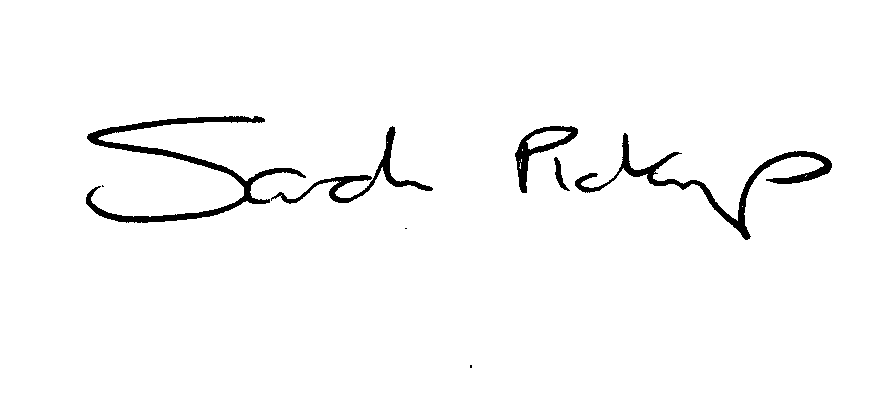 Sarah Pickup